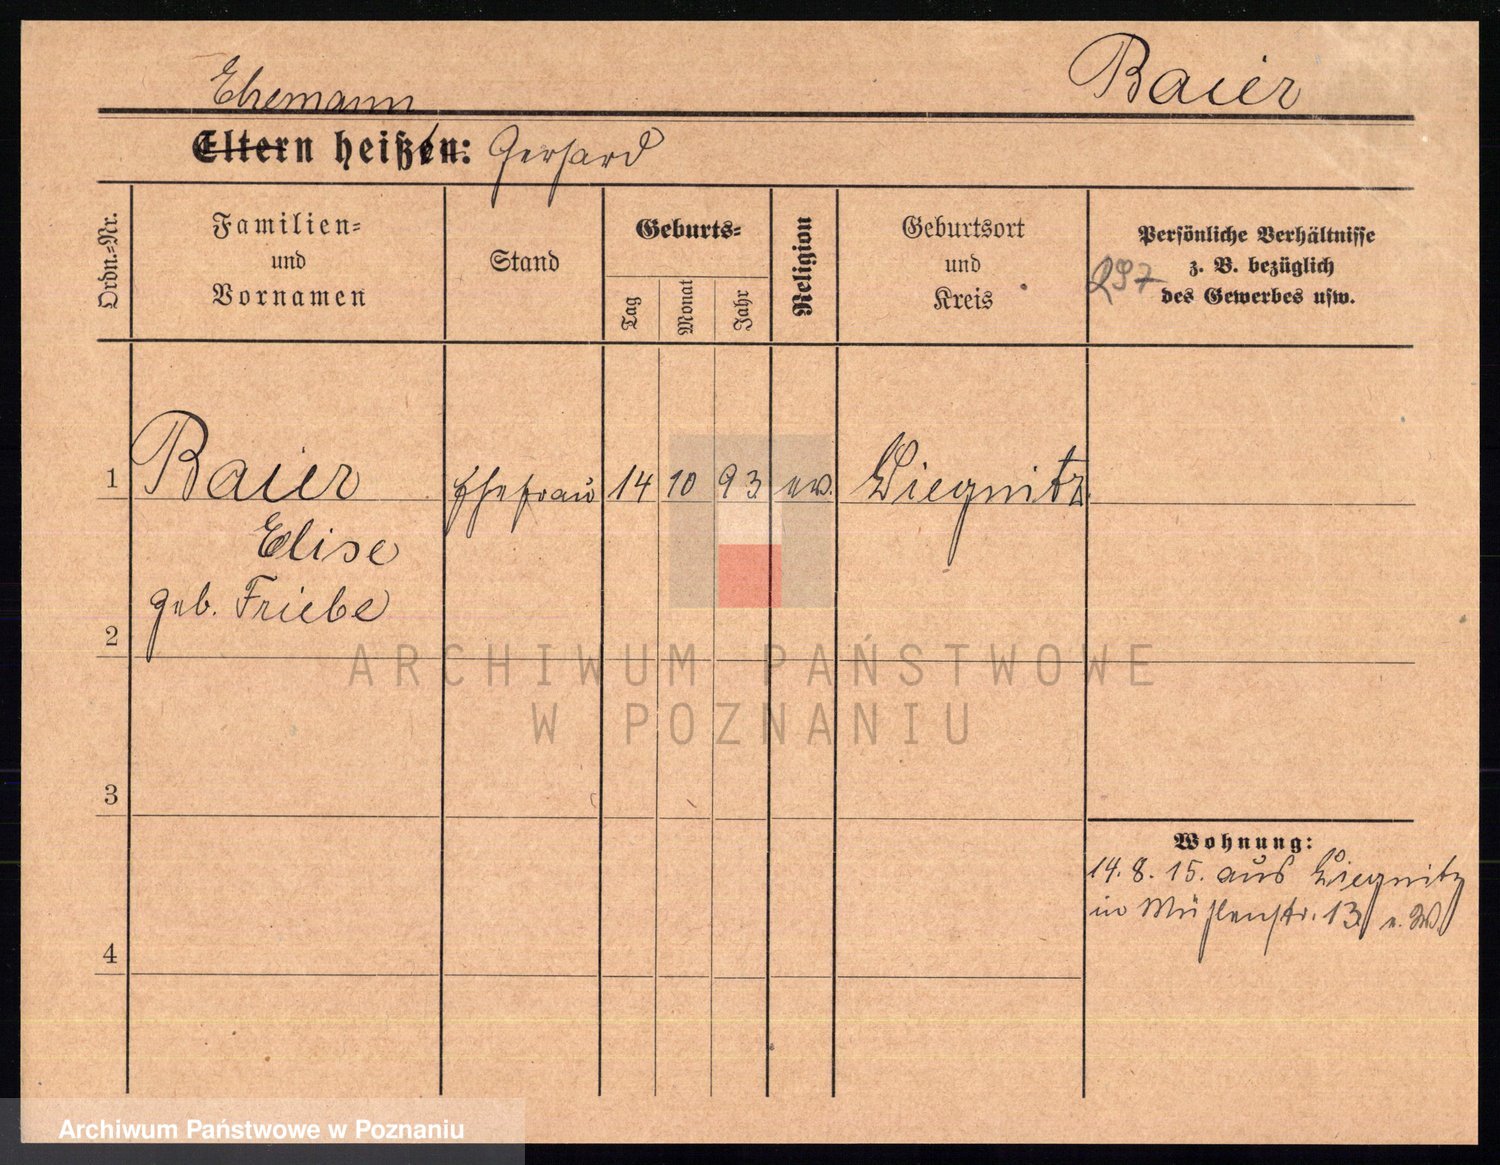 Baier
Ehemann
Eltern heißt: Gerhard
Ordn.-Nr.
Familien-
und
Vornamen
Stand
Geburts-
Tag
Monat
Jahr
Religion
Geburtsort
und
Kreis
Persönliche Verhältnisse
z. B. bezüglich
des Gewerbes usw.
297
1 Baier Ehefrau 14 10 93 ev. Liegnitz
Elise
geb. Friebe
2
3
4
Wohnung:
14. 8. 15. aus Liegnitz
in Mühlenstr. 13
ARCHIWUM PAŃSTWOWE
W POZNANIU
Archiwum Państwowe w Poznaniu